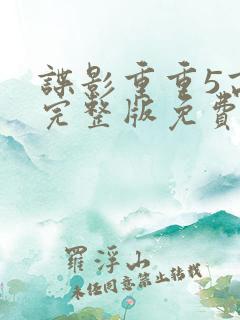 諜影重重5高
完整版免費
羅浮山
未经同意禁止转载